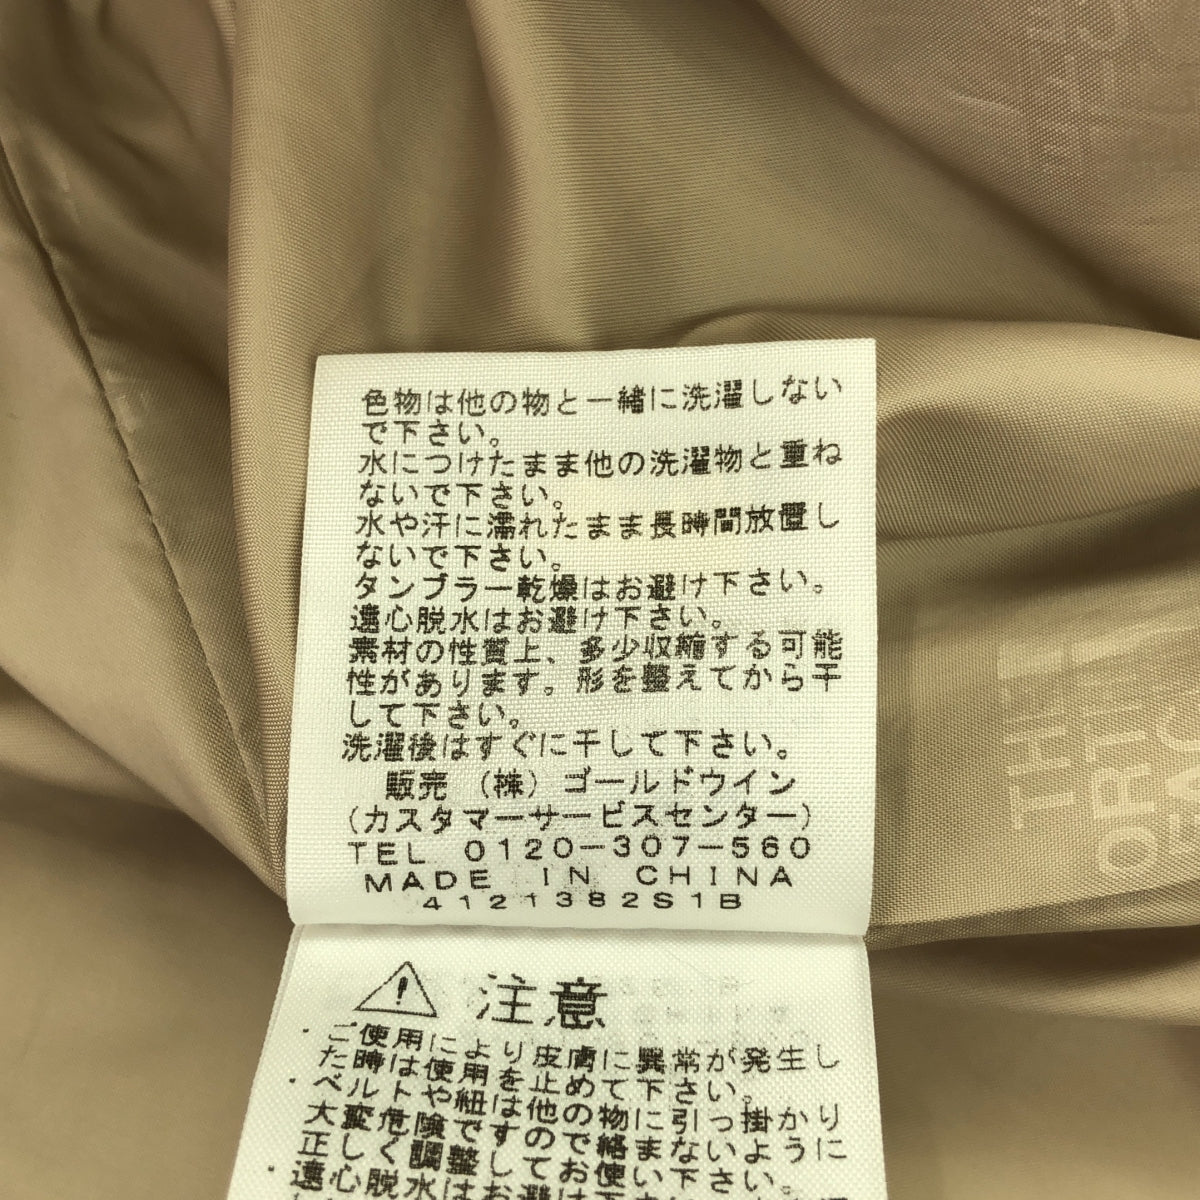 色物は他の物と一緒に洗濯しない
で下さい。
水につけたまま他の洗濯物と重ね
ないで下さい。
水や汗に濡れたまま長時間放置し
ないで下さい。
タンブラー乾燥はお避け下さい。
遠心脱水はお避け下さい。
素材の性質上、多少収縮する可能
性があります。形を整えてから干
して下さい。
洗濯後はすぐに干して下さい。
販売 (株)ゴールドウイン
(カスタマーサービスセンター)
TEL 0120-307-560
MADE IN CHINA
4121382S1B
注意
・ご使用により皮膚に異常が発生し
た時は使用を止めて下さい。
・ベルトや紐は他の物に引っ掛かり
大変危険ですので絡まないように
正しく調整してお使い下さい。
・遠心脱水はお避け